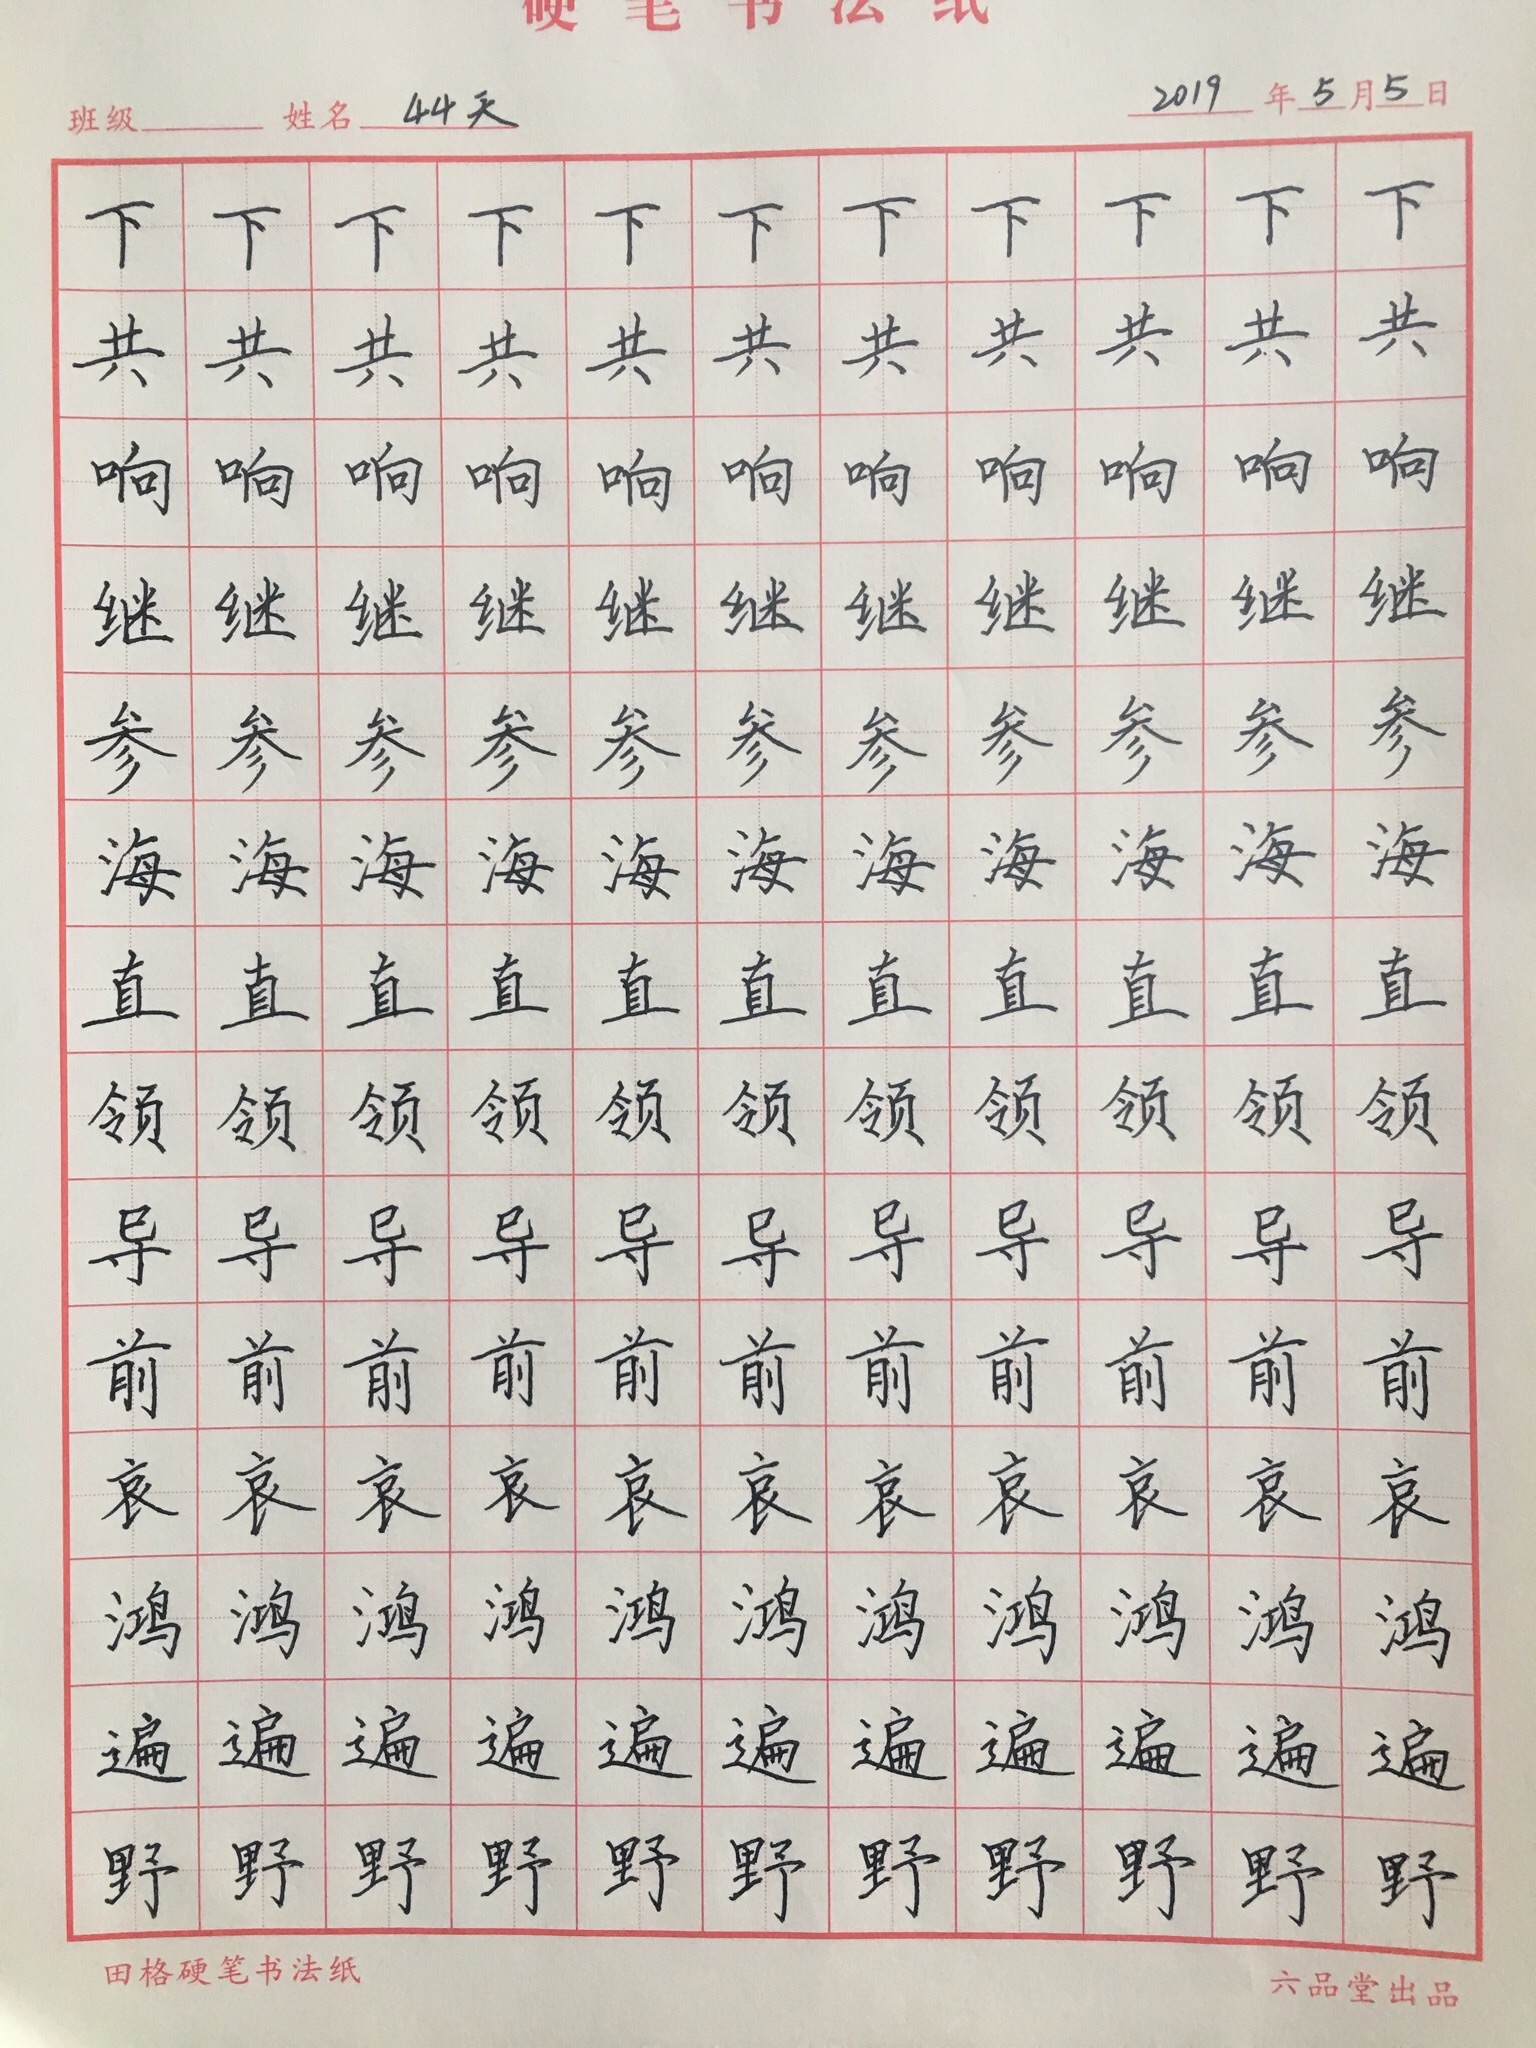 硬笔书法纸
班级 姓名 44天 2019年5月5日
下下下下下下下下下下下
共共共共共共共共共共共
响响响响响响响响响响响
继继继继继继继继继继继
参参参参参参参参参参参
海海海海海海海海海海海
直直直直直直直直直直直
领领领领领领领领领领领
导导导导导导导导导导导
前前前前前前前前前前前
哀哀哀哀哀哀哀哀哀哀哀
鸿鸿鸿鸿鸿鸿鸿鸿鸿鸿鸿
遍遍遍遍遍遍遍遍遍遍遍
野野野野野野野野野野野
田格硬笔书法纸 六品堂出品